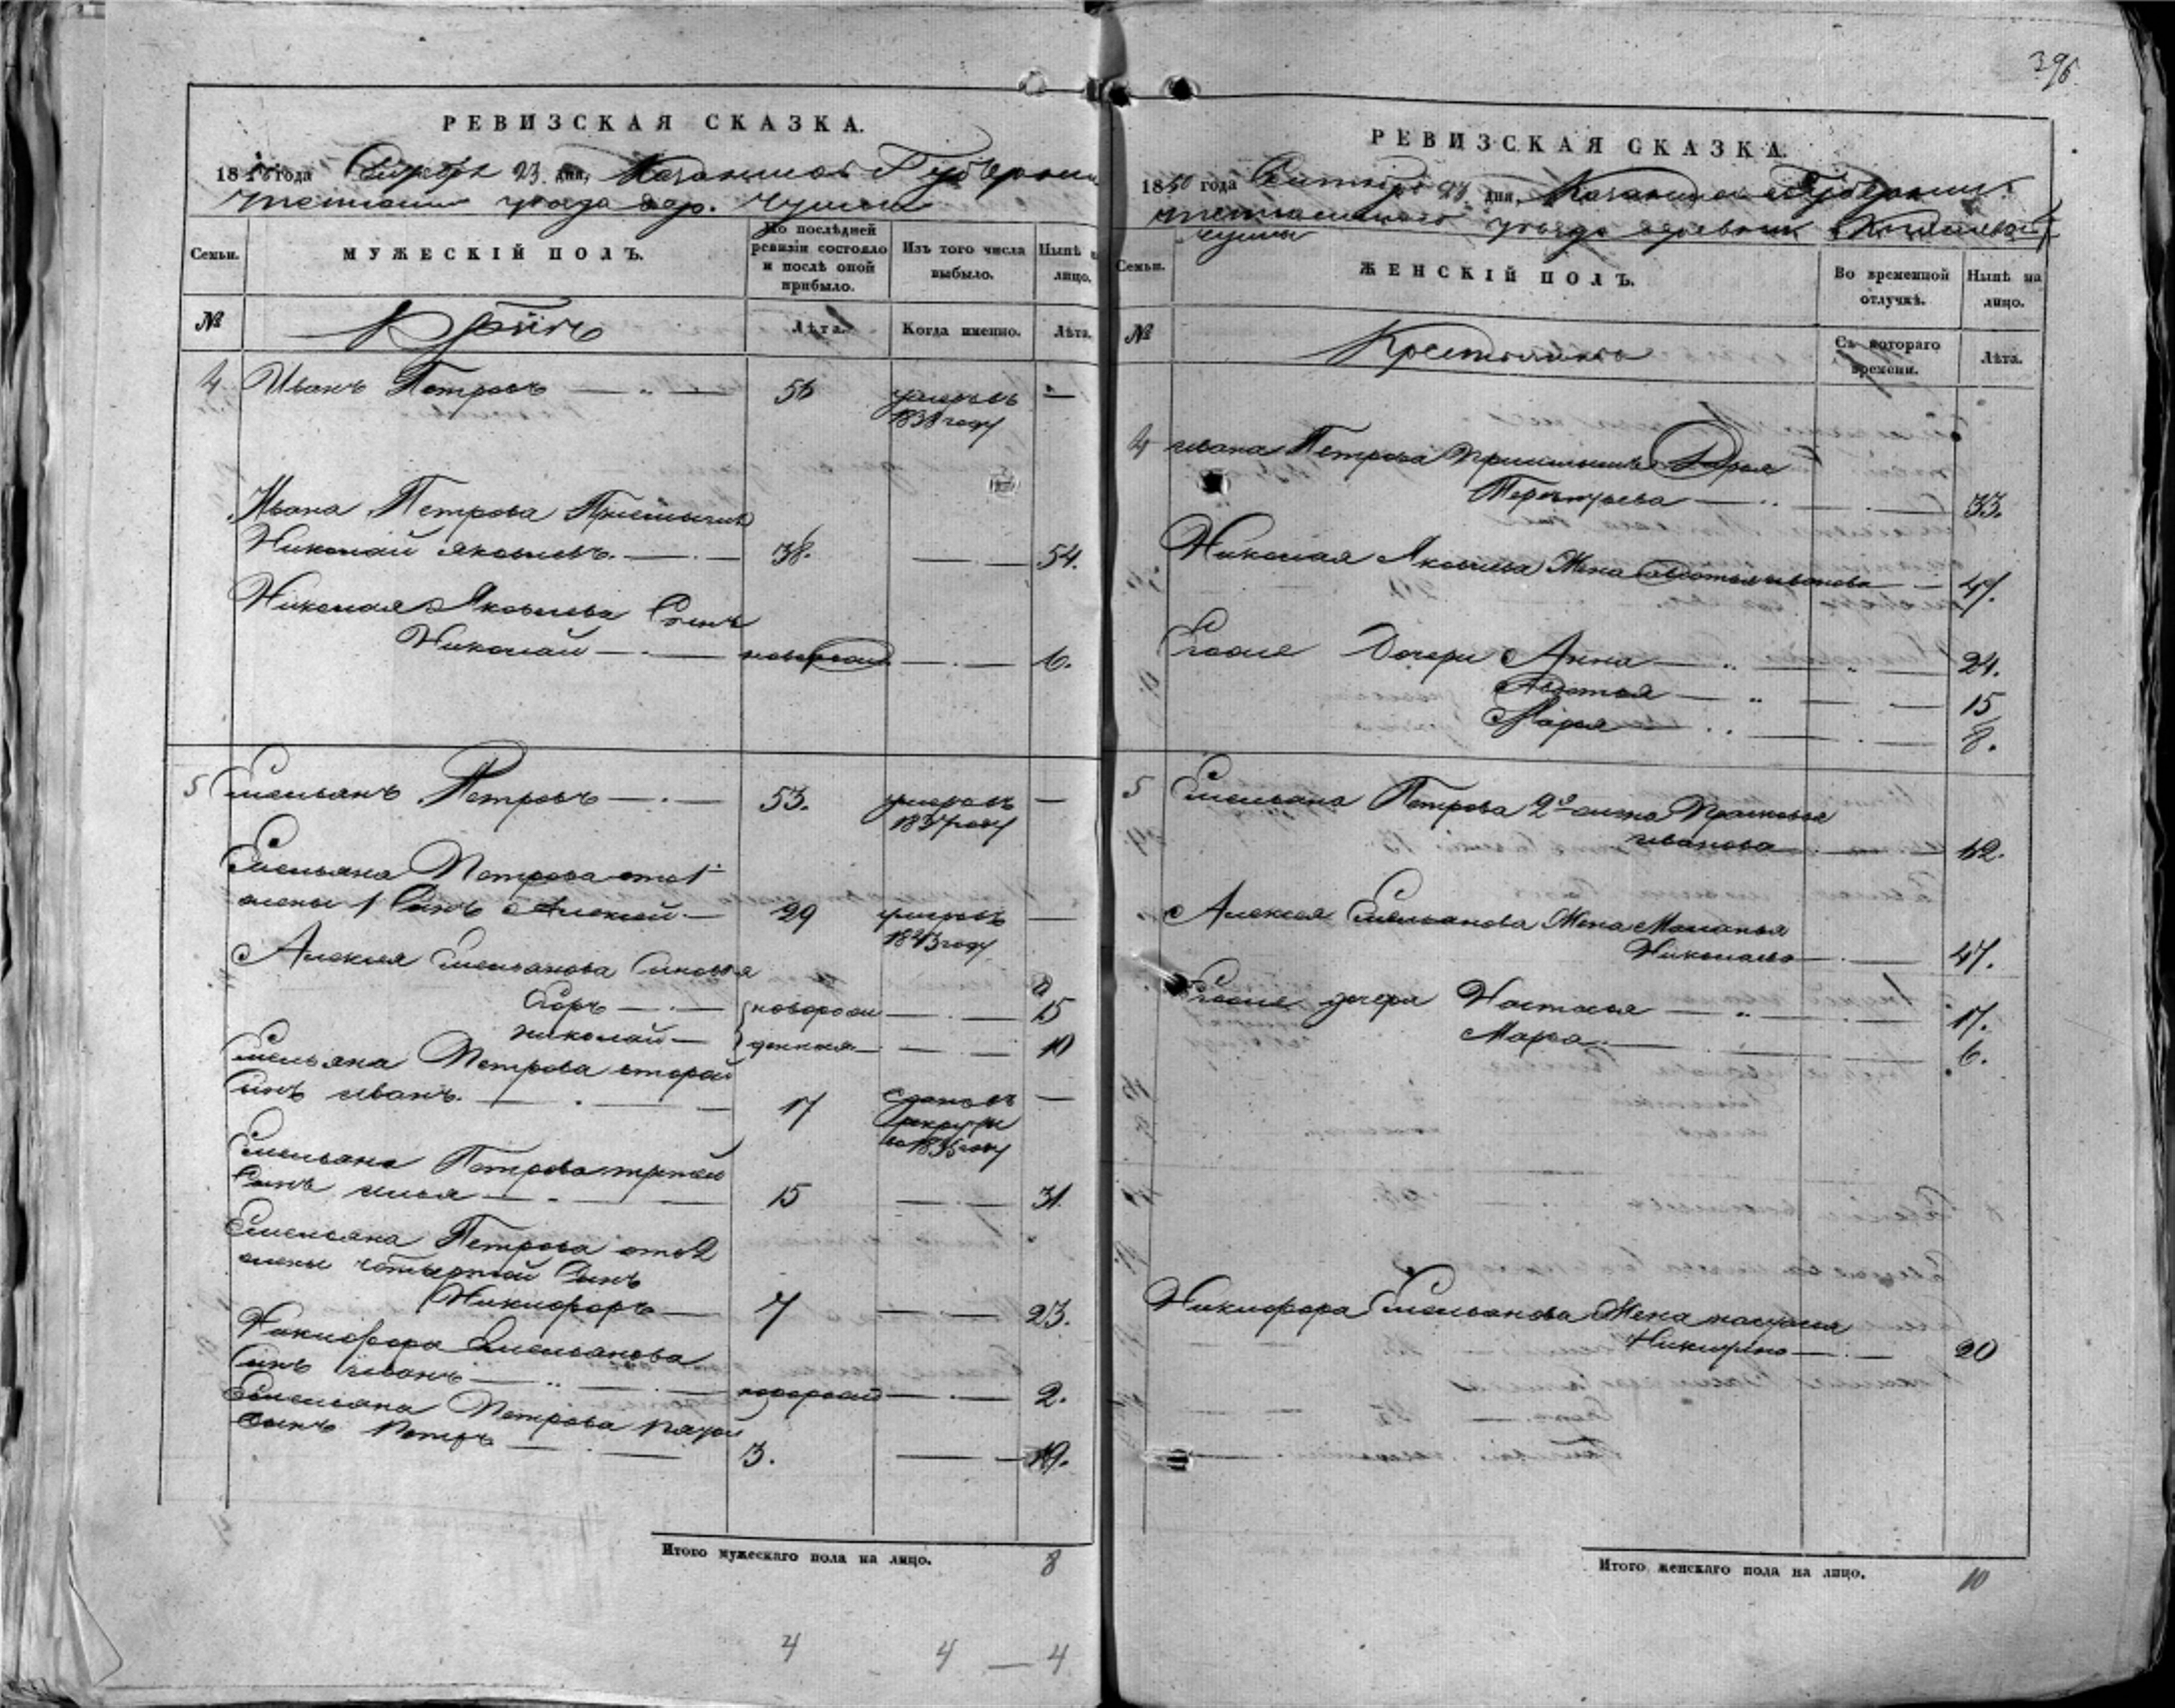 396
РЕВИЗСКАЯ СКАЗКА.
1850 года Сентября 23 дня, Казанской Губернии
уезда дер.
Семьи.
МУЖЕСКІЙ ПОЛЪ.
По послѣдней ревизіи состояло и послѣ оной прибыло.
Изъ того числа выбыло.
Нынѣ на лицо.
№
Лѣта.
Когда именно.
Лѣта.
4 Иванъ Петровъ 56 умеръ въ 1838 году —
Ивана Петрова Приемышъ
Николай Яковлевъ. 38. — 54.
Николая Яковлева Сынъ
Николай — новорожд — 6.
5 Емельянъ Петровъ 53. умеръ въ 1837 году —
Емельяна Петрова отъ 1й
жены 1 Сынъ Алексей 29 умеръ въ 1843 году —
Алексея Емельянова Сыновья
Егоръ — новорож — 15
Николай — денныя — 10
Емельяна Петрова второй
Сынъ Иванъ. 17 сданъ въ рекруты в 1835 году —
Емельяна Петрова третей
Сынъ Илья 15 — 31.
Емельяна Петрова отъ 2
жены четвертой Сынъ
Никифоръ 7 — 23.
Никифора Емельянова
Сынъ Иванъ — новорожд — 2.
Емельяна Петрова пятой
Сынъ Петръ 3. — 19.
Итого мужескаго пола на лицо. 8
4 4 — 4
РЕВИЗСКАЯ СКАЗКА.
1850 года Сентября 23 дня, Казанской Губернии
уезда деревни
Семьи.
ЖЕНСКІЙ ПОЛЪ.
Во временной отлучкѣ.
Нынѣ на лицо.
№
Крестьянъ
Съ котораго времени.
Лѣта.
4 Ивана Петрова Дарья
33.
Николая Яковлева Жена Авдотья Иванова — 47.
Дочери Анна — 24.
Авдотья — 15
Марья — 8.
5 Емельяна Петрова 2я жена Прасковья
Иванова — 62.
Алексея Емельянова Жена Маланья
Николаева — 47.
дочери Настасья — 17.
Марья — 6.
Никифора Емельянова Жена
20
Итого женскаго пола на лицо. 10